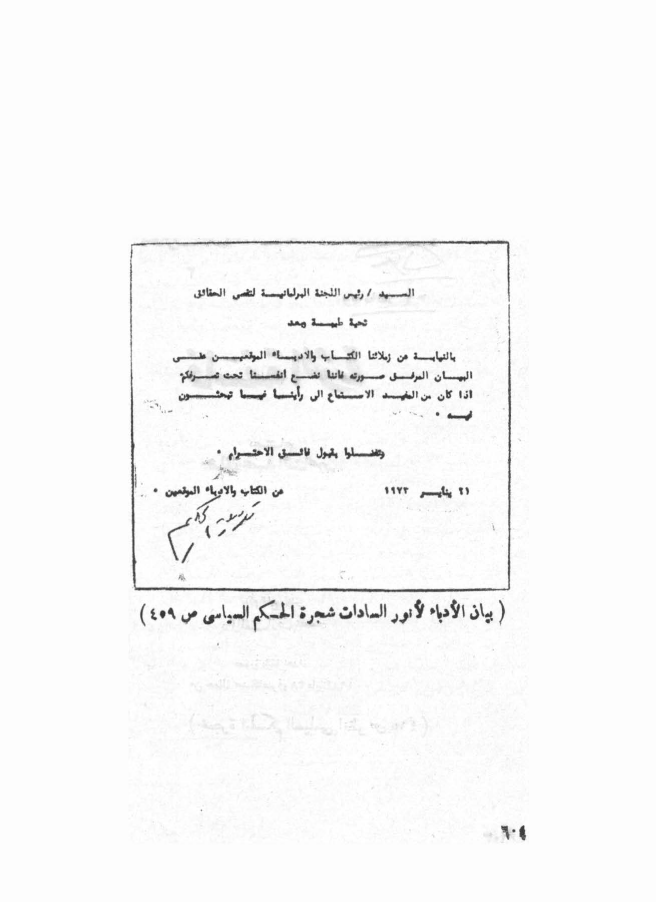 السيد / رئيس اللجنة البرلمانية لتقصى الحقائق
تحية طيبة وبعد
بالنيابة عن زملائنا الكتاب والادباء الموقعين على
البيان المرفق صورته فاننا نضع أنفسنا تحت تصرفكم
اذا كان من المفيد الاستماع الى رأينا فيما تبحثون
فيه •
وتفضلوا بقبول فائق الاحترام •
٢١ يناير ١٩٧٣
عن الكتاب والادباء الموقعين •
( بيان الأدباء لأنور السادات شجرة الحكم السياسى ص ٤٥٩ )
٦٠٤